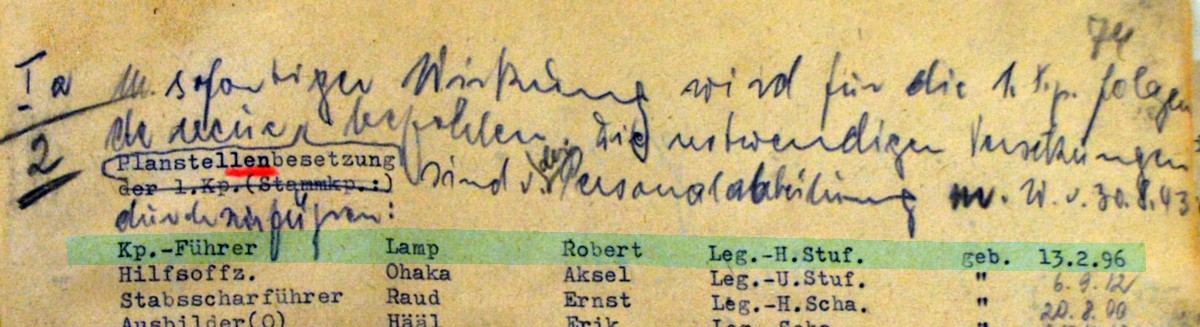 74
Ia m. sofortiger Wirkung wird für die 1. Kp. folgen
de neue befohlen. Die notwendigen Versetzungen
2 Planstellenbesetzung
der 1.Kp.(Stammkp.:) sind v. der Personalabteilung m. W. v. 30.8.43
durchzuführen:
Kp.-Führer Lamp Robert Leg.-H.Stuf. geb. 13.2.96
Hilfsoffz. Ohaka Aksel Leg.-U.Stuf. " 6.9.12
Stabsscharführer Raud Ernst Leg.-H.Scha. " 20.8.00
Ausbilder(O) Hääl Erik Leg.-Scha.